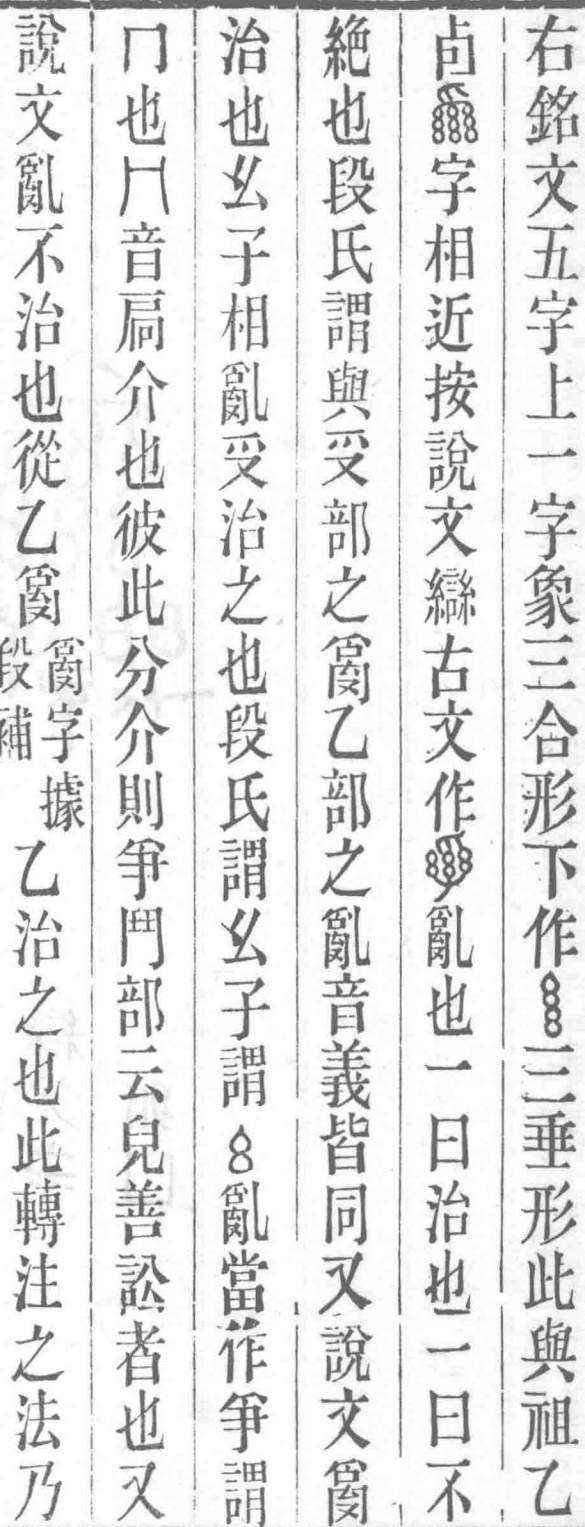 右銘文五字上一字象三合形下作三垂形此與祖乙
卣字相近按說文䜌古文作亂也一曰治也一曰不
絶也段氏謂與𠬪部之𤔔乙部之亂音義皆同又說文𤔔
治也幺子相亂𠬪治之也段氏謂幺子謂亂當作爭謂
冂也冂音扃介也彼此分介則爭鬥部云兒善訟者也又
說文亂不治也從乙𤔔𤔔字據段補乙治之也此轉注之法乃